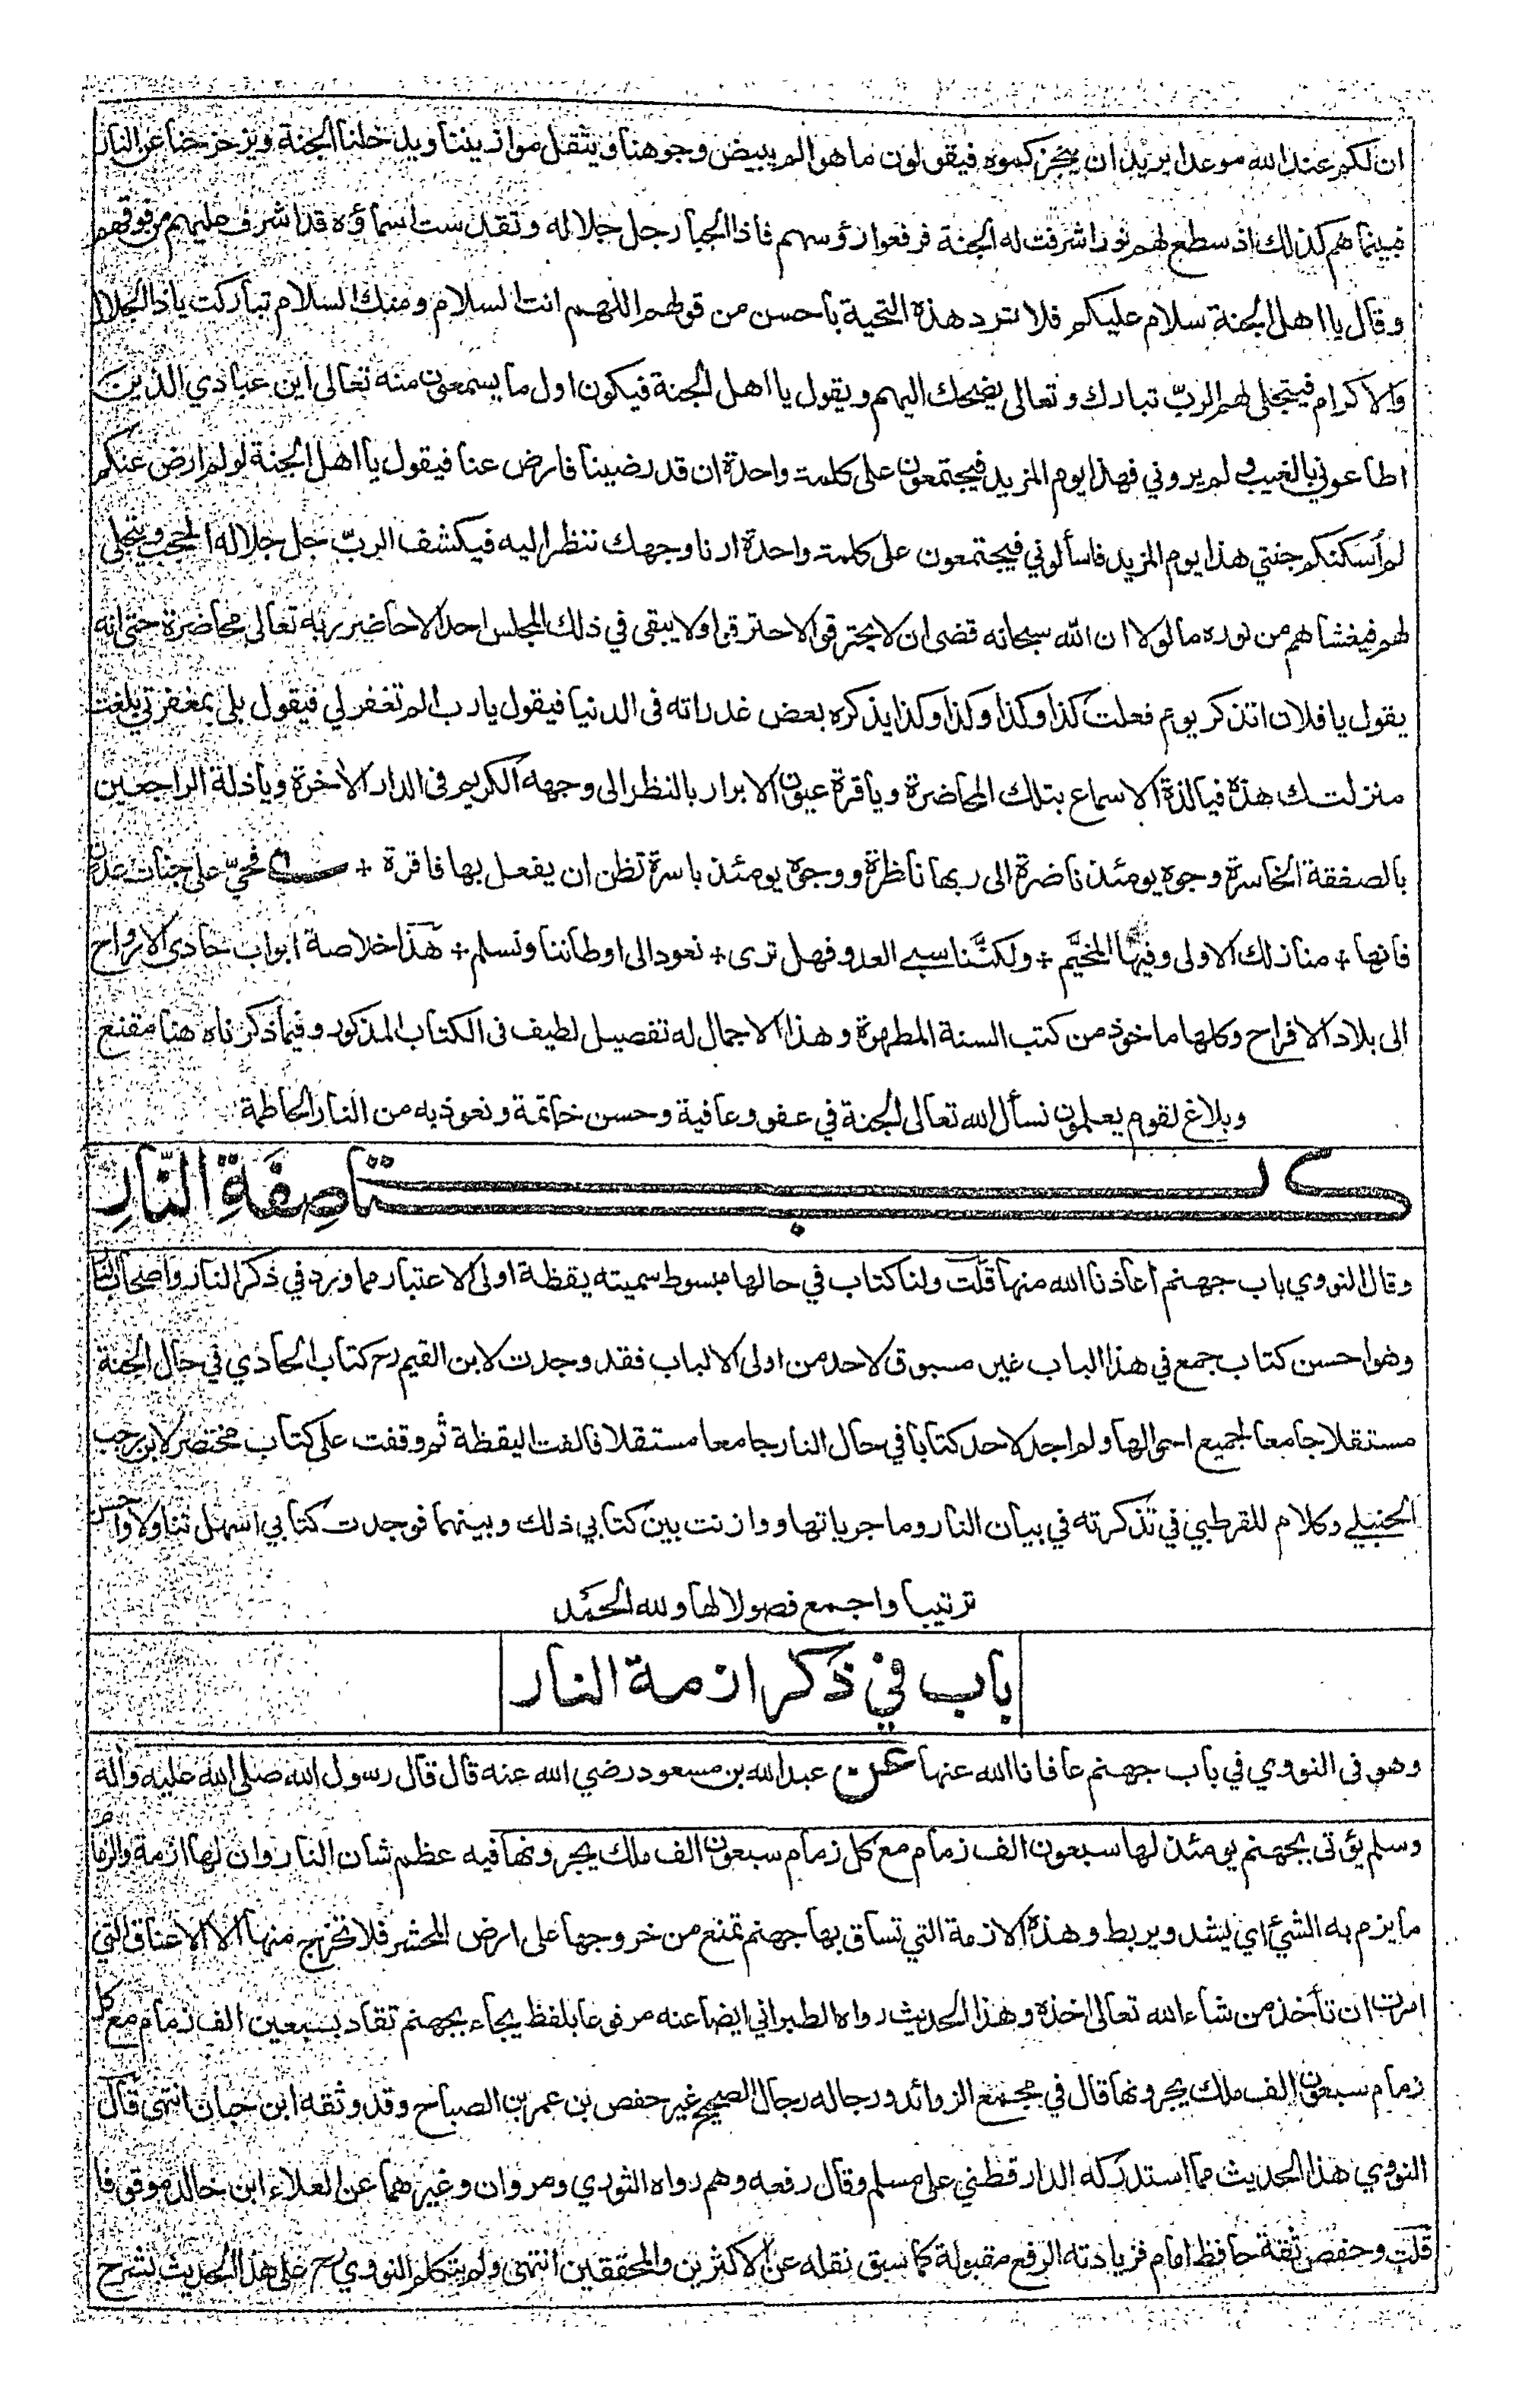 ان لكم عند الله موعدا يريد ان ينجزكموه فيقولون ما هو الم يبيض وجوهنا ويثقل موازيننا ويدخلنا الجنة ويزحزحنا عن النار
فبينما هم كذلك اذ سطع لهم نور اشرقت له الجنة فرفعوا رؤسهم فاذا الجبار جل جلاله وتقدست اسماؤه قد اشرف عليهم من فوقهم
وقال يا اهل الجنة سلام عليكم فلا ترد هذه التحية بأحسن من قولهم اللهم انت السلام ومنك السلام تباركت يا ذا الجلال
والاكرام فيتجلى لهم الربّ تبارك وتعالى يضحك اليهم ويقول يا اهل الجنة فيكون اول ما يسمعون منه تعالى اين عبادي الذين
اطاعوني بالغيب ولم يروني فهذا يوم المزيد فيجتمعون على كلمة واحدة ان قد رضينا فارض عنا فيقول يا اهل الجنة لو لم ارض عنكم
لم أسكنكم جنتي هذا يوم المزيد فاسألوني فيجتمعون على كلمة واحدة ارنا وجهك ننظر اليه فيكشف الربّ جل جلاله الحجب ويتجلى
لهم فيغشاهم من نوره ما لولا ان الله سبحانه قضى ان لا يحترقوا لاحترقوا ولا يبقى في ذلك المجلس احد الا حاضره ربه تعالى محاضرة حتى انه
يقول يا فلان اتذكر يوم فعلت كذا وكذا وكذا وكذا يذكره بعض غدراته فى الدنيا فيقول يا رب الم تغفر لي فيقول بلى بمغفرتي بلغت
منزلتك هذه فيا لذة الاسماع بتلك المحاضرة ويا قرة عيون الابرار بالنظر الى وجهه الكريم فى الدار الآخرة ويا ذلة الراجعين
بالصفقة الخاسرة وجوه يومئذ ناضرة الى ربها ناظرة ووجوه يومئذ باسرة تظن ان يفعل بها فاقرة + فحيّ على جنات عدن
فانها + منازلك الاولى وفيها المخيَّم + ولكنَّنا سبي العدو فهل ترى + نعود الى اوطاننا ونسلم + هذا خلاصة ابواب حادي الارواح
الى بلاد الافراح وكلها ماخوذ من كتب السنة المطهرة وهذا الاجمال له تفصيل لطيف فى الكتاب المذكور وفيما ذكرناه هنا مقنع
وبلاغ لقوم يعلمون نسأل الله تعالى الجنة في عفو وعافية وحسن خاتمة ونعوذ به من النار الحاطمة
كتاب صِفَةِ النَّارِ
وقال النووي باب جهنم اعاذنا الله منها قلت ولنا كتاب في حالها مبسوط سميته يقظة اولى الاعتبار مما ورد في ذكر النار واصحاب النار
وهو احسن كتاب جمع في هذا الباب غير مسبوق لاحد من اولى الالباب فقد وجدت لابن القيم رح كتاب الحادي في حال الجنة
مستقلا جامعا لجميع احوالها ولم اجد لاحد كتابا في حال النار جامعا مستقلا فالفت اليقظة ثم وقفت على كتاب مختصر لابن رجب
الحنبلي وكلام للقرطبي في تذكرته في بيان النار وماجرياتها ووازنت بين كتابي ذلك وبينهما فوجدت كتابي اسهل تناولا واحسن
ترتيبا واجمع فصولا لها ولله الحمد
باب في ذكر ازمة النار
وهو فى النووي في باب جهنم عافانا الله عنها عن عبد الله بن مسعود رضي الله عنه قال قال رسول الله صلى الله عليه وآله
وسلم يؤتى بجهنم يومئذ لها سبعون الف زمام مع كل زمام سبعون الف ملك يجرونها فيه عظم شان النار وان لها ازمة والزمام
ما يزم به الشيئ اي يشد ويربط وهذه الازمة التي تساق بها جهنم تمنع من خروجها على ارض المحشر فلا تخرج منها الا الاعناق التي
امرت ان تأخذ من شاء الله تعالى اخذه وهذا الحديث رواه الطبراني ايضا عنه مرفوعا بلفظ يجاء بجهنم تقاد بسبعين الف زمام مع كل
زمام سبعون الف ملك يجرونها قال في مجمع الزوائد ورجاله رجال الصحيح غير حفص بن عمر بن الصباح وقد وثقه ابن حبان انتهى قال
النووي هذا الحديث مما استدركه الدارقطني على مسلم وقال رفعه وهم رواه الثوري ومروان وغيرهما عن العلاء ابن خالد موقوفا
قلت وحفص ثقة حافظ امام فزيادته الرفع مقبولة كما سبق نقله عن الاكثرين والمحققين انتهى ولم يتكلم النووي رح على هذا الحديث بشرح